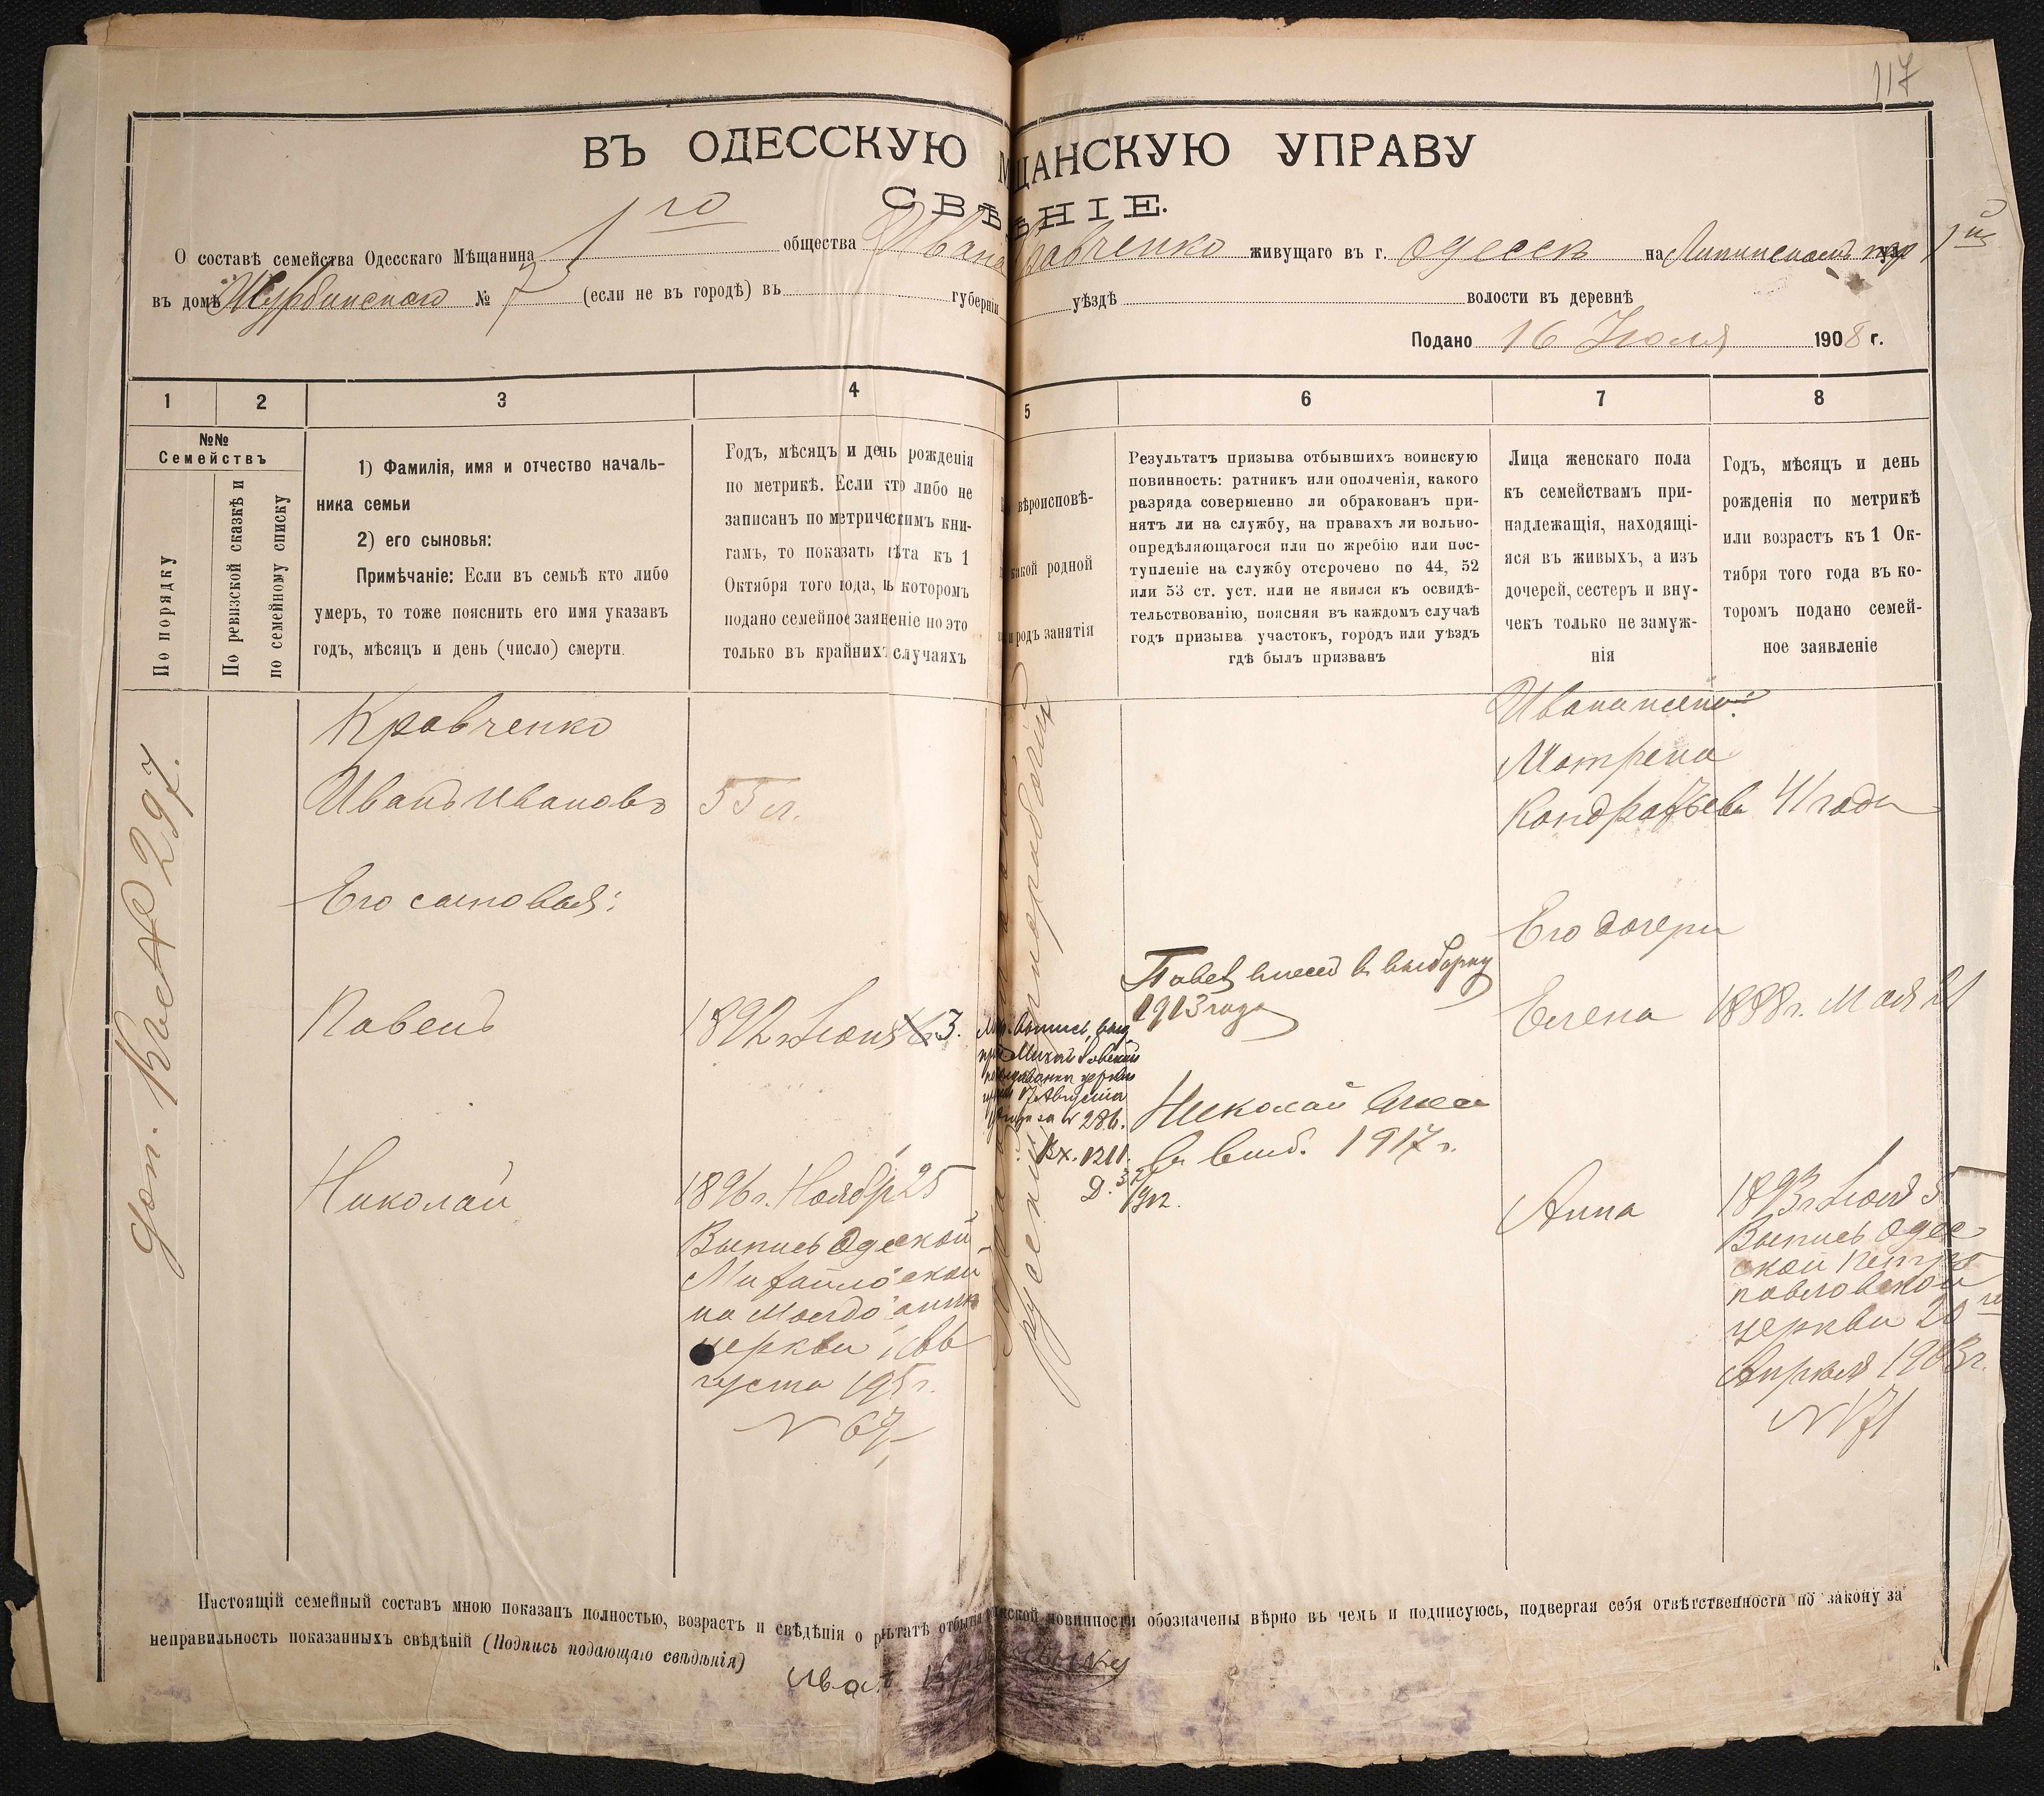 117
ВЪ ОДЕССКУЮ М ЩАНСКУЮ УПРАВУ
СВѢ ѢНІЕ.
О составѣ семейства Одесскаго Мѣщанина 1го общества Ивана равченко живущаго въ г. Одессѣ на 1й
въ домѣ № 7 (если не въ городѣ) въ губерніи уѣздѣ волости въ деревнѣ
Подано 16 Июля 1908 г.
1 2 3 4 5 6 7 8
№№
Семействъ
По порядку
По ревизской сказкѣ и
по семейному списку
1) Фамилія, имя и отчество началь-
ника семьи
2) его сыновья:
Примѣчаніе: Если въ семьѣ кто либо
умеръ, то тоже пояснить его имя указавъ
годъ, мѣсяцъ и день (число) смерти.
Годъ, мѣсяцъ и день рожденія
по метрикѣ. Если кто либо не
записанъ по метрическимъ кни-
гамъ, то показать лѣта къ 1
Октября того года, въ которомъ
подано семейное заявленіе но это
только въ крайнихъ случаяхъ
вѣроисповѣ-
какой родной
и родъ занятія
Результатъ призыва отбывшихъ воинскую
повинность: ратникъ или ополченія, какого
разряда совершенно ли обракованъ при-
нятъ ли на службу, на правахъ ли вольно-
опредѣляющагося или по жребію или пос-
тупленіе на службу отсрочено по 44, 52
или 53 ст. уст. или не явился къ освидѣ-
тельствованію, поясняя въ каждомъ случаѣ
годъ призыва участокъ, городъ или уѣздъ
гдѣ былъ призванъ
Лица женскаго пола
къ семействамъ при-
надлежащія, находящі-
яся въ живыхъ, а изъ
дочерей, сестеръ и вну-
чекъ только не замуж-
нія
Годъ, мѣсяцъ и день
рожденія по метрикѣ
или возрастъ къ 1 Ок-
тября того года въ ко-
торомъ подано семей-
ное заявленіе
доп. 297.
Кравченко
Иванъ Ивановъ 55 л.
Его сыновья:
Павелъ 1892 г. 3.
Николай 1896 г. Ноябр 25
Выпись Одеской
Михайловской
на Молдованкѣ
церкви 1 Ав
густа 195 г.
N 67
русской
чернорабочій
Вх. 1211.
1912.
Павел внесен в выборку
1913 года
Николай внесен
в выб. 1917 г.
Ивана жена:
Матрена
Кондратьева 41 года
Его дочери
Елена 1888 г. Мая 21
Анна 1893 г. Июля 5
Выпись Одес
ской Петро
павловской
церкви 20го
Апреля 1903 г.
N 171
Настоящій семейный составъ мною показанъ полностью, возрастъ и свѣдѣнія о р ьтатѣ отбыт нской повинности обозначены вѣрно въ чемъ и подписуюсь, подвергая себя отвѣтственности по закону за
неправильность показанныхъ свѣдѣній (Подпись подающаго свѣдѣнія)
Иван